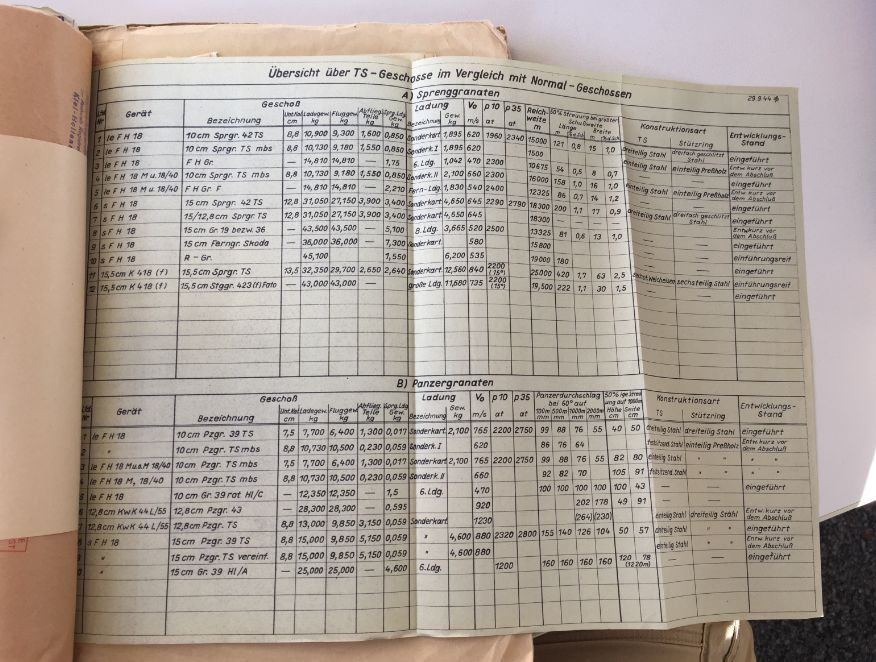 Übersicht über TS-Geschosse im Vergleich mit Normal-Geschossen
29.9.44
A) Sprenggranaten
Gerät Geschoß Ladung Vo p10 p35 Reichweite 50% Streuung bei größter Schußweite Konstruktionsart Entwicklungs-Stand
Bezeichnung Unt.Kal. cm Ladegew. kg Fluggew. kg Abflieg. Teile kg Sprg.Ldg. Gew. kg Bezeichng. Gew. kg m/s at at m Länge m Breite m TS Stützring
1 le FH 18 10cm Sprgr. 42 TS 8,8 10,900 9,300 1,600 0,850 Sonderkart. 1,895 620 1960 2340 15000 121 0,8 15 1,0 dreiteilig Stahl dreifach geschlitzt Stahl eingeführt
2 le FH 18 10cm Sprgr. TS mbs 8,8 10,730 9,180 1,550 0,850 Sonderk. I 1,895 620 2300 einteilig Stahl einteilig Preßholz Entw. kurz vor dem Abschluß
3 le FH 18 FH Gr. — 14,810 14,810 — 1,75 6. Ldg. 1,042 470 2300 10675 54 0,5 8 0,7 — — eingeführt
4 le FH 18 M u. 18/40 10cm Sprgr. TS mbs 8,8 10,730 9,180 1,550 0,850 Sonderk. II 2,100 660 2300 16000 158 1,0 16 1,0 TS einteilig Preßholz Entw. kurz vor dem Abschluß
5 le FH 18 M u. 18/40 FH Gr. F — 14,810 14,810 — 2,210 Fern-Ldg. 1,830 540 2400 12325 86 0,7 14 1,2 — — eingeführt
6 s FH 18 15cm Sprgr. 42 TS 12,8 31,050 27,150 3,900 3,400 Sonderkart. 4,650 645 2290 2790 18300 200 1,1 77 0,9 dreiteilig Stahl dreifach geschlitzt Stahl eingeführt
7 s FH 18 15/12,8cm Sprgr. TS 12,8 31,050 27,150 3,900 3,400 Sonderkart. 4,550 645 18300 Entw. kurz vor dem Abschluß
8 s FH 18 15cm Gr 19 bezw. 36 — 43,500 43,500 — 5,100 8. Ldg. 3,665 520 2500 13325 81 0,6 13 1,0 — — eingeführt
9 s FH 18 15cm Ferngr. Skoda — 36,000 36,000 — 7,300 Sonderkart. 580 15800 — — eingeführt
10 s FH 18 R-Gr. 45,100 1,550 6,200 535 19000 180 einführungsreif
11 15,5cm K 418 (f) 15,5cm Sprgr. TS 13,5 32,350 29,700 2,650 2,640 Sonderkart. 12,560 840 2200 (15°) 25000 420 1,7 63 2,5 sechsteilig Stahl einführungsreif
12 15,5cm K 418 (f) 15,5cm Stggr. 423 (f) Fato — 43,000 43,000 — große Ldg. 11,680 735 2200 (15°) 19,500 222 1,1 30 1,5 — — eingeführt
B) Panzergranaten
Gerät Geschoß Ladung Vo p10 p35 Panzerdurchschlag bei 60° auf 50% ige Streuung auf 1000m Konstruktionsart Entwicklungs-Stand
Bezeichnung Unt.Kal. cm Ladegew. kg Fluggew. kg Abflieg. Teile kg Sprg.Ldg. Gew. kg Bezeichnung Gew. kg m/s at at 100m mm 500m mm 1000m mm 2000m mm Höhe cm Seite cm TS Stützring
1 le FH 18 10cm Pzgr. 39 TS 7,5 7,700 6,400 1,300 0,017 Sonderkart. 2,100 765 2200 2750 99 88 76 55 40 50 dreiteilig Stahl dreiteilig Stahl eingeführt
2 " 10cm Pzgr. TS mbs 8,8 10,730 10,500 0,230 0,059 Sonderk. I 620 86 76 64 einteilig Preßholz Entw. kurz vor dem Abschluß
3 le FH 18 M u. M 18/40 10cm Pzgr. TS mbs 7,5 7,700 6,400 1,300 0,017 Sonderkart. 2,100 765 2200 2750 99 88 76 55 82 80 einteilig Stahl " " " "
4 le FH 18 M, 18/40 10cm Pzgr. TS mbs 8,8 10,730 10,500 0,230 0,059 Sonderk. II 660 92 82 70 105 91 " " " "
5 le FH 18 10cm Gr. 39 rot Hl/C — 12,350 12,350 — 1,5 6. Ldg. 470 100 100 100 100 100 43 — — eingeführt
6 12,8cm KwK 44 L/55 12,8cm Pzgr. 43 — 28,300 28,300 — 0,595 920 202 178 49 91 — —
7 12,8cm KwK 44 L/55 12,8cm Pzgr. TS 8,8 13,000 9,850 3,150 0,059 Sonderkart. 1230 (264) (230) einteilig Stahl dreiteilig Stahl Entw. kurz vor dem Abschluß
8 s FH 18 15cm Pzgr. 39 TS 8,8 15,000 9,850 5,150 0,059 " 4,600 880 2320 2800 155 140 126 104 50 57 dreiteilig Stahl " " eingeführt
" 15cm Pzgr. TS vereinf. 8,8 15,000 9,850 5,150 0,059 " 4,600 880 einteilig Stahl " " Entw. kurz vor dem Abschluß
" 15cm Gr. 39 Hl/A — 25,000 25,000 — 4,600 6. Ldg. 1200 160 160 160 160 120 78 (1220m) — — eingeführt